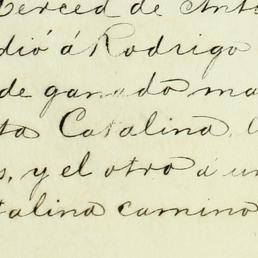 Merced de Anto
dió á Rodrigo
de ganado ma
ta Catalina.
s, y el otro á un
talina camino